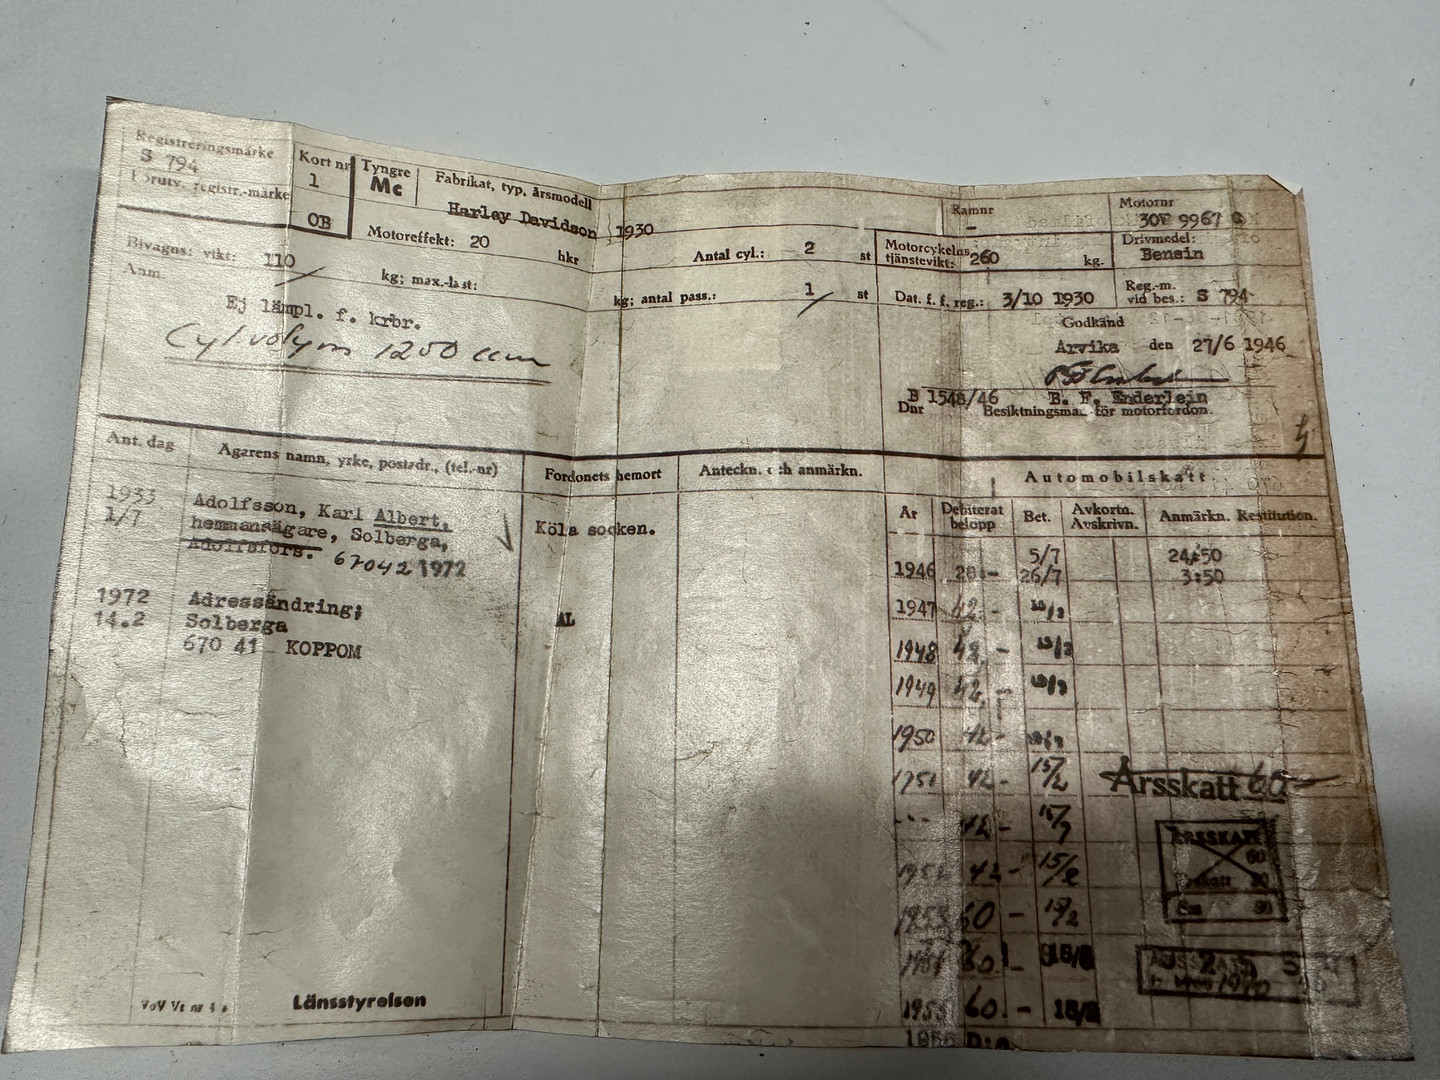 Registreringsmärke
S 794
Förutv. registr.-märke
Kort nr
1
OB
Tyngre
Mc
Fabrikat, typ, årsmodell
Harley Davidson 1930
Ramnr
-
Motornr
30V 9967
Motoreffekt: 20 hkr
Antal cyl.: 2 st
Motorcykelns tjänstevikt: 260 kg.
Drivmedel:
Bensin
Bivagns: vikt: 110 kg; max.-last: kg; antal pass.: 1 st
Dat. f. f. reg.: 3/10 1930
Reg.-m.
vid bes.: S 794
Anm.
Ej lämpl. f. krbr.
Cylvolym 1250 ccm
Godkänd
Arvika den 27/6 1946
B 1548/46 B. F. Enderlein
Dnr Besiktningsma. för motorfordon.
Ant. dag
Ägarens namn, yrke, postadr., (tel.-nr)
Fordonets hemort
Anteckn. och anmärkn.
Automobilskatt
År
Debiterat belopp
Bet.
Avkortn. Avskrivn.
Anmärkn. Restitution.
1933
1/7
Adolfsson, Karl Albert,
hemmansägare, Solberga,
Adolfsfors. 67042 1972
Köla socken.
1972
14.2
Adressändring;
Solberga
670 41 KOPPOM
AL
5/7 24:50
1946 28:- 26/7 3:50
1947 42.-
1948 42.-
1949 42.-
1950 42-
1951 42- 15/2
42-
42- 15/2
1953 60 - 
60.-
1955 60.-
Årsskatt 60
ÅRSSKATT
60
80
Länsstyrelsen